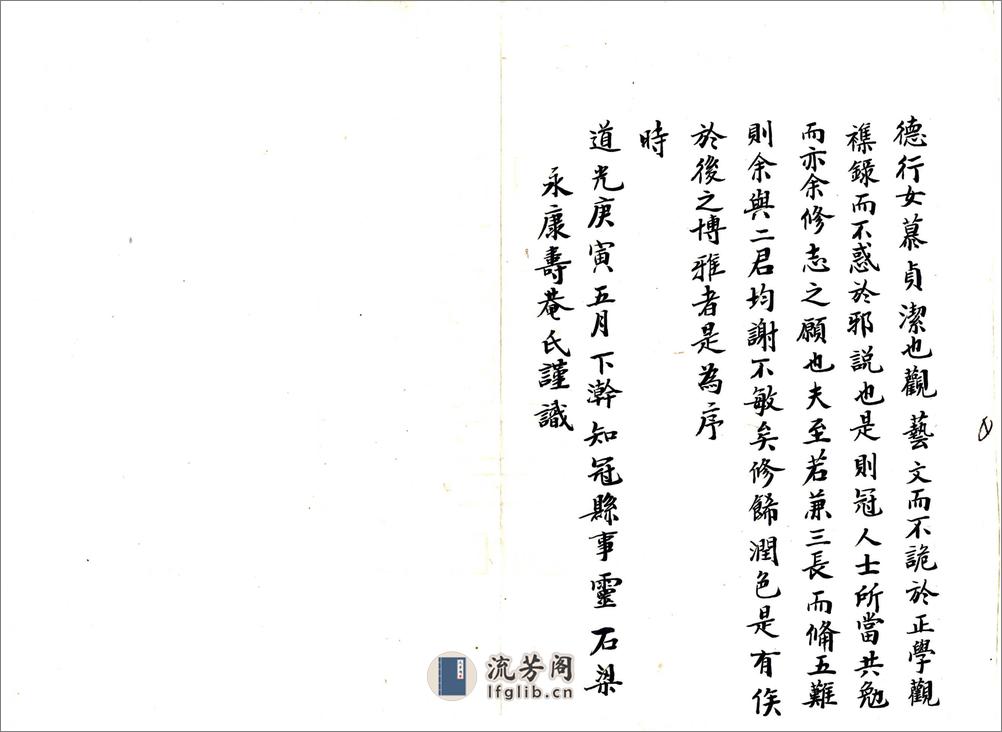 德行女慕貞潔也觀藝文而不詭於正學觀
襍錄而不惑於邪說也是則冠人士所當共勉
而亦余修志之願也夫至若兼三長而備五難
則余與二君均謝不敏矣修餙潤色是有俟
於後之博雅者是為序
時
道光庚寅五月下澣知冠縣事靈石梁
永康壽菴氏謹識
流芳阁
lfglib.cn